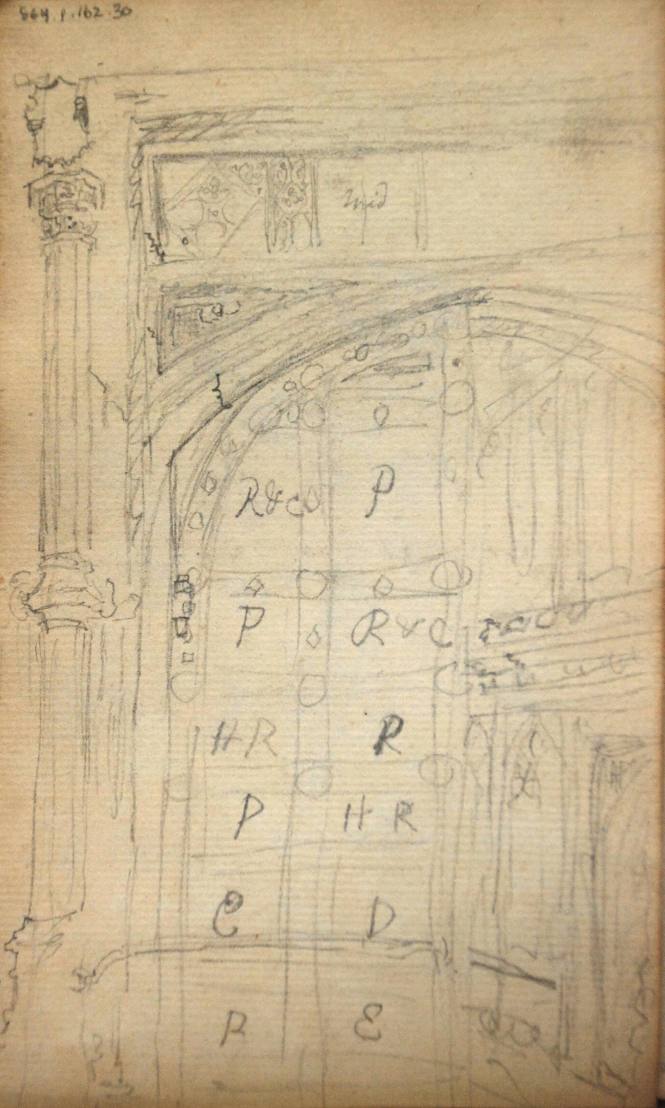 864.1.162.30
R&C P
P R&C
HR R
P HR
C D
R E